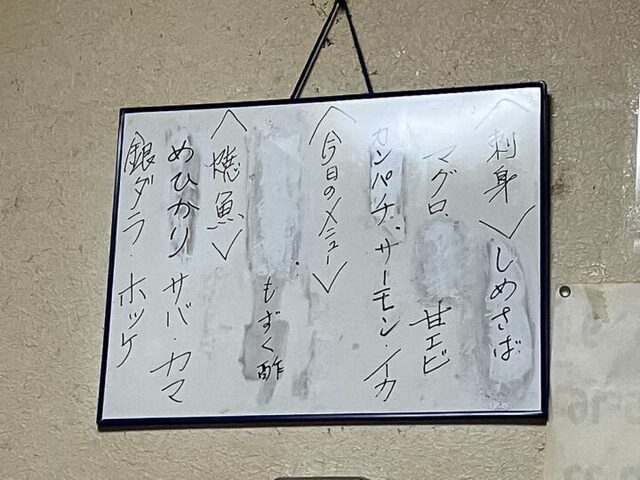 〈刺身〉しめさば
マグロ、甘エビ
カンパチ、サーモン・イカ
〈今日のメニュー〉
もずく酢
〈焼魚〉
めひかり サバ・カマ
銀ダラ・ホッケ
16